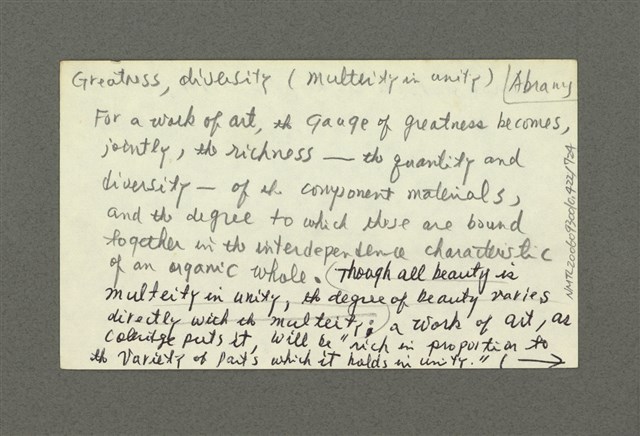 Greatness, diversity (multeity in unity) Abrams
For a work of art, th gauge of greatness becomes,
jointly, th richness — th quantity and
diversity — of th component materials,
and th degree to which these are bound
together in th interdependence characteristic
of an organic whole. (Though all beauty is
multeity in unity, th degree of beauty varies
directly with th multeity; a work of art, as
Coleridge puts it, will be "rich in proportion to
th variety of parts which it holds in unity." ( →
NMTL20060930016.422/724